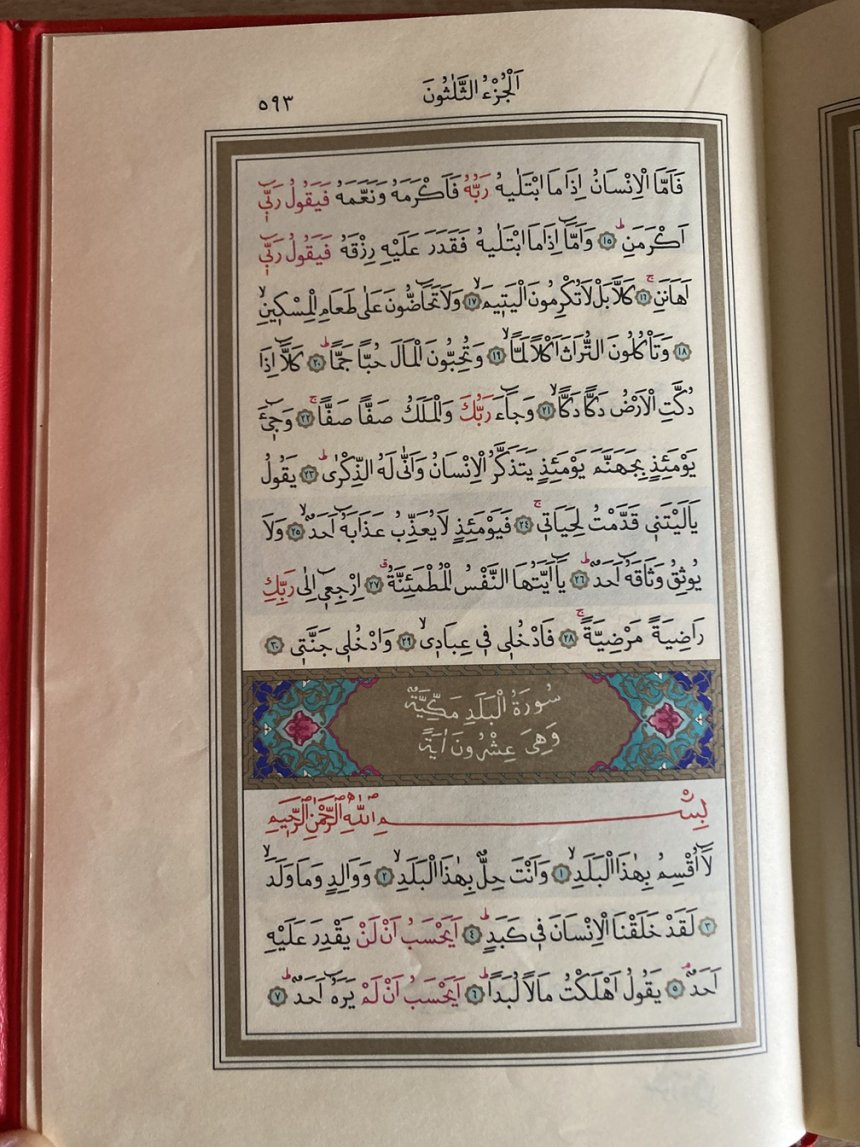 اَلْجُزْءُ الثَّلٰثُونَ
٥٩٣
فَاَمَّا الْاِنْسَانُ اِذَا مَا ابْتَلٰيهُ رَبُّهُ فَاَكْرَمَهُ وَنَعَّمَهُ فَيَقُولُ رَبّٖٓي
اَكْرَمَنِ ١٥ وَاَمَّٓا اِذَا مَا ابْتَلٰيهُ فَقَدَرَ عَلَيْهِ رِزْقَهُ فَيَقُولُ رَبّٖٓي
اَهَانَنِ ١٦ كَلَّا بَلْ لَا تُكْرِمُونَ الْيَتٖيمَ ١٧ وَلَا تَحَٓاضُّونَ عَلٰى طَعَامِ الْمِسْكٖينِ
١٨ وَتَأْكُلُونَ التُّرَاثَ اَكْلًا لَمًّا ١٩ وَتُحِبُّونَ الْمَالَ حُبًّا جَمًّا ٢٠ كَلَّٓا اِذَا
دُكَّتِ الْاَرْضُ دَكًّا دَكًّا ٢١ وَجَٓاءَ رَبُّكَ وَالْمَلَكُ صَفًّا صَفًّا ٢٢ وَجٖٓيءَ
يَوْمَئِذٍ بِجَهَنَّمَ يَوْمَئِذٍ يَتَذَكَّرُ الْاِنْسَانُ وَاَنّٰى لَهُ الذِّكْرٰى ٢٣ يَقُولُ
يَا لَيْتَنٖي قَدَّمْتُ لِحَيَاتٖي ٢٤ فَيَوْمَئِذٍ لَا يُعَذِّبُ عَذَابَهُٓ اَحَدٌ ٢٥ وَلَا
يُوثِقُ وَثَاقَهُٓ اَحَدٌ ٢٦ يَٓا اَيَّتُهَا النَّفْسُ الْمُطْمَئِنَّةُ ٢٧ اِرْجِعٖٓي اِلٰى رَبِّكِ
رَاضِيَةً مَرْضِيَّةً ٢٨ فَادْخُلٖي فٖي عِبَادٖي ٢٩ وَادْخُلٖي جَنَّتٖي ٣٠
سُورَةُ الْبَلَدِ مَكِّيَّةٌ
وَهِيَ عِشْرُونَ اٰيَةً
بِسْمِ اللّٰهِ الرَّحْمٰنِ الرَّحٖيمِ
لَٓا اُقْسِمُ بِهٰذَا الْبَلَدِ ١ وَاَنْتَ حِلٌّ بِهٰذَا الْبَلَدِ ٢ وَوَالِدٍ وَمَا وَلَدَ
٣ لَقَدْ خَلَقْنَا الْاِنْسَانَ فٖي كَبَدٍ ٤ اَيَحْسَبُ اَنْ لَنْ يَقْدِرَ عَلَيْهِ
اَحَدٌ ٥ يَقُولُ اَهْلَكْتُ مَالًا لُبَدًا ٦ اَيَحْسَبُ اَنْ لَمْ يَرَهُٓ اَحَدٌ ٧